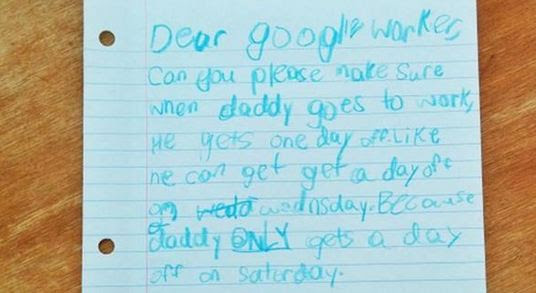 Dear google worker,
Can you please make sure
when daddy goes to work,
He gets one day off. Like
he can get get a day off
on wedd wednsday. Because
daddy ONLY gets a day
off on saturday.